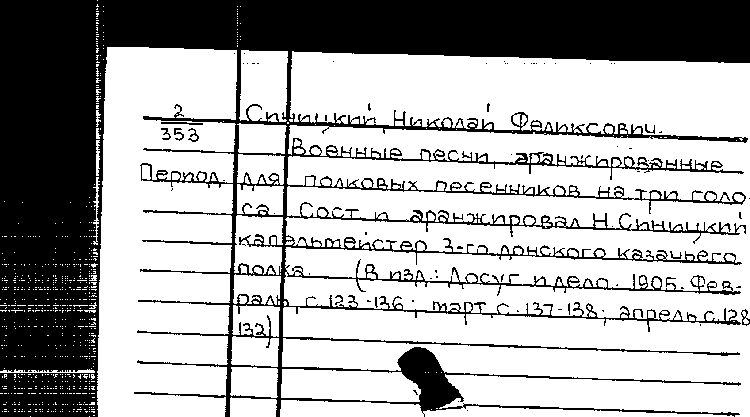 2 Синицкий, Николай Феликсович.
353
Военные песни, аранжированные
Период. для полковых песенников на три голо-
са. Сост. и аранжировал Н. Синицкий
капельмейстер 3-го донского казачьего
полка. (В изд.: Досуг и дело. 1905. Фев-
раль, с. 123-136; март, с. 137-138; апрель, с. 128
132)